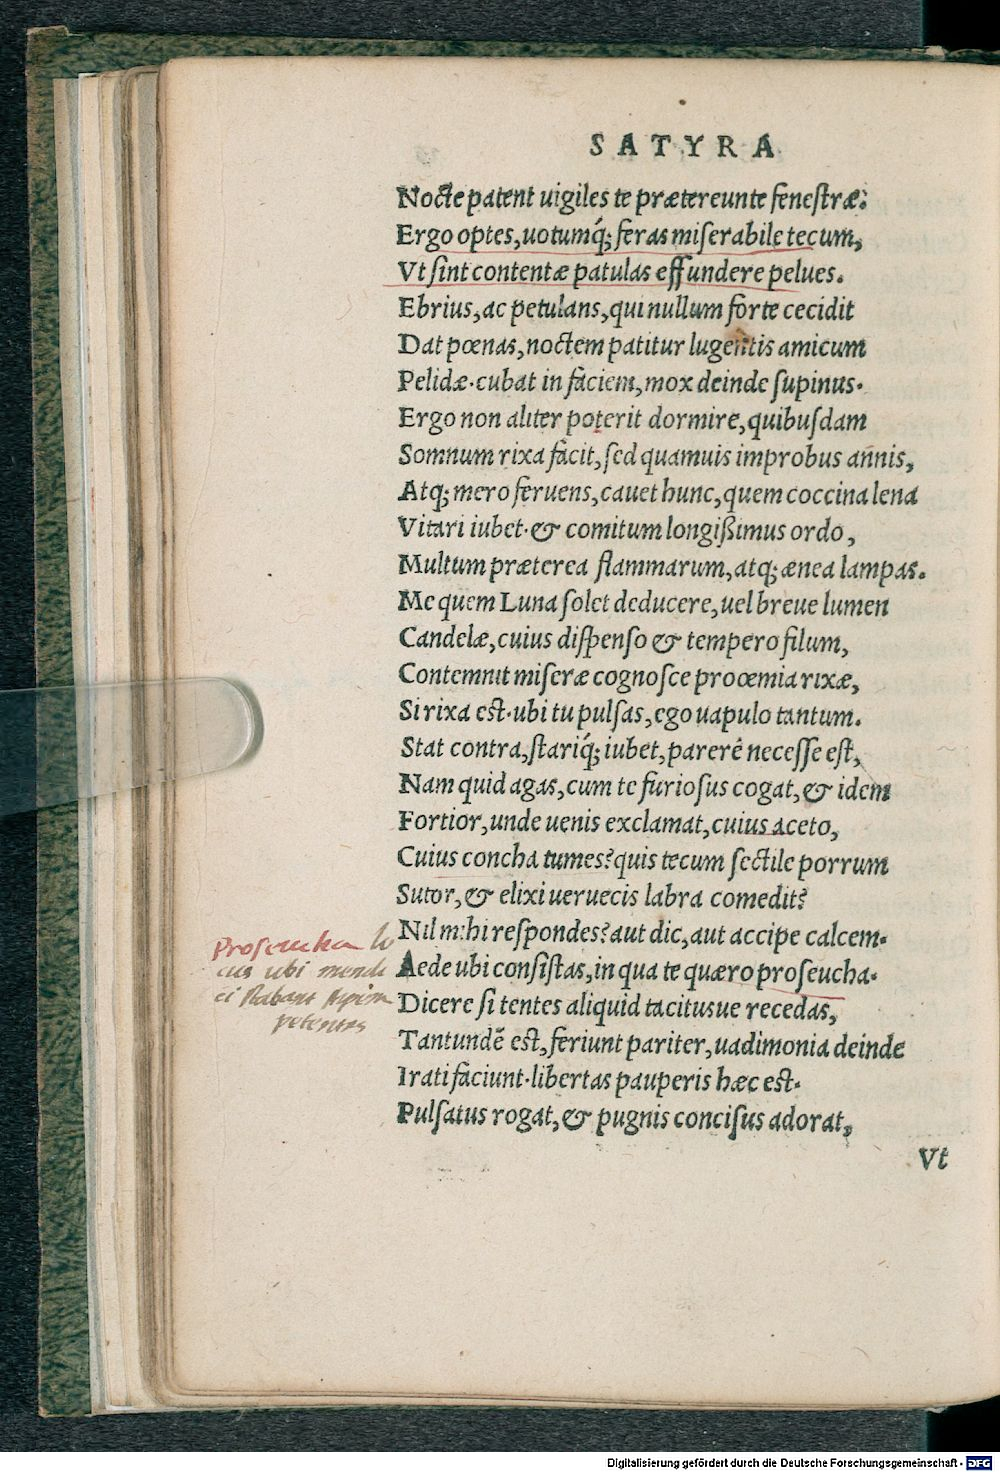 SATYRA
Nocte patent uigiles te prætereunte fenestræ.
Ergo optes, uotumq́; feras miserabile tecum,
Vt sint contentæ patulas effundere pelues.
Ebrius, ac petulans, qui nullum forte cecidit
Dat pœnas, noctem patitur lugentis amicum
Pelidæ. cubat in faciem, mox deinde supinus.
Ergo non aliter poterit dormire, quibusdam
Somnum rixa facit, sed quamuis improbus annis,
Atq; mero feruens, cauet hunc, quem coccina lena
Vitari iubet. & comitum longißimus ordo,
Multum præterea flammarum, atq; ænea lampas.
Me quem Luna solet deducere, uel breue lumen
Candelæ, cuius dispenso & tempero filum,
Contemnit miseræ cognosce proœmia rixæ,
Si rixa est. ubi tu pulsas, ego uapulo tantum.
Stat contra, stariq́; iubet, parerê necesse est,
Nam quid agas, cum te furiosus cogat, & idem
Fortior, unde uenis exclamat, cuius aceto,
Cuius concha tumes? quis tecum sectile porrum
Sutor, & elixi ueruecis labra comedit?
Nil mihi respondes? aut dic, aut accipe calcem.
Proseucha lo
Aede ubi consistas, in qua te quæro proseucha.
cus ubi mendi
Dicere si tentes aliquid tacitusue recedas,
ci stabant stipem
petentes
Tantundē est, feriunt pariter, uadimonia deinde
Irati faciunt. libertas pauperis hæc est.
Pulsatus rogat, & pugnis concisus adorat,
Vt
Digitalisierung gefördert durch die Deutsche Forschungsgemeinschaft - DFG